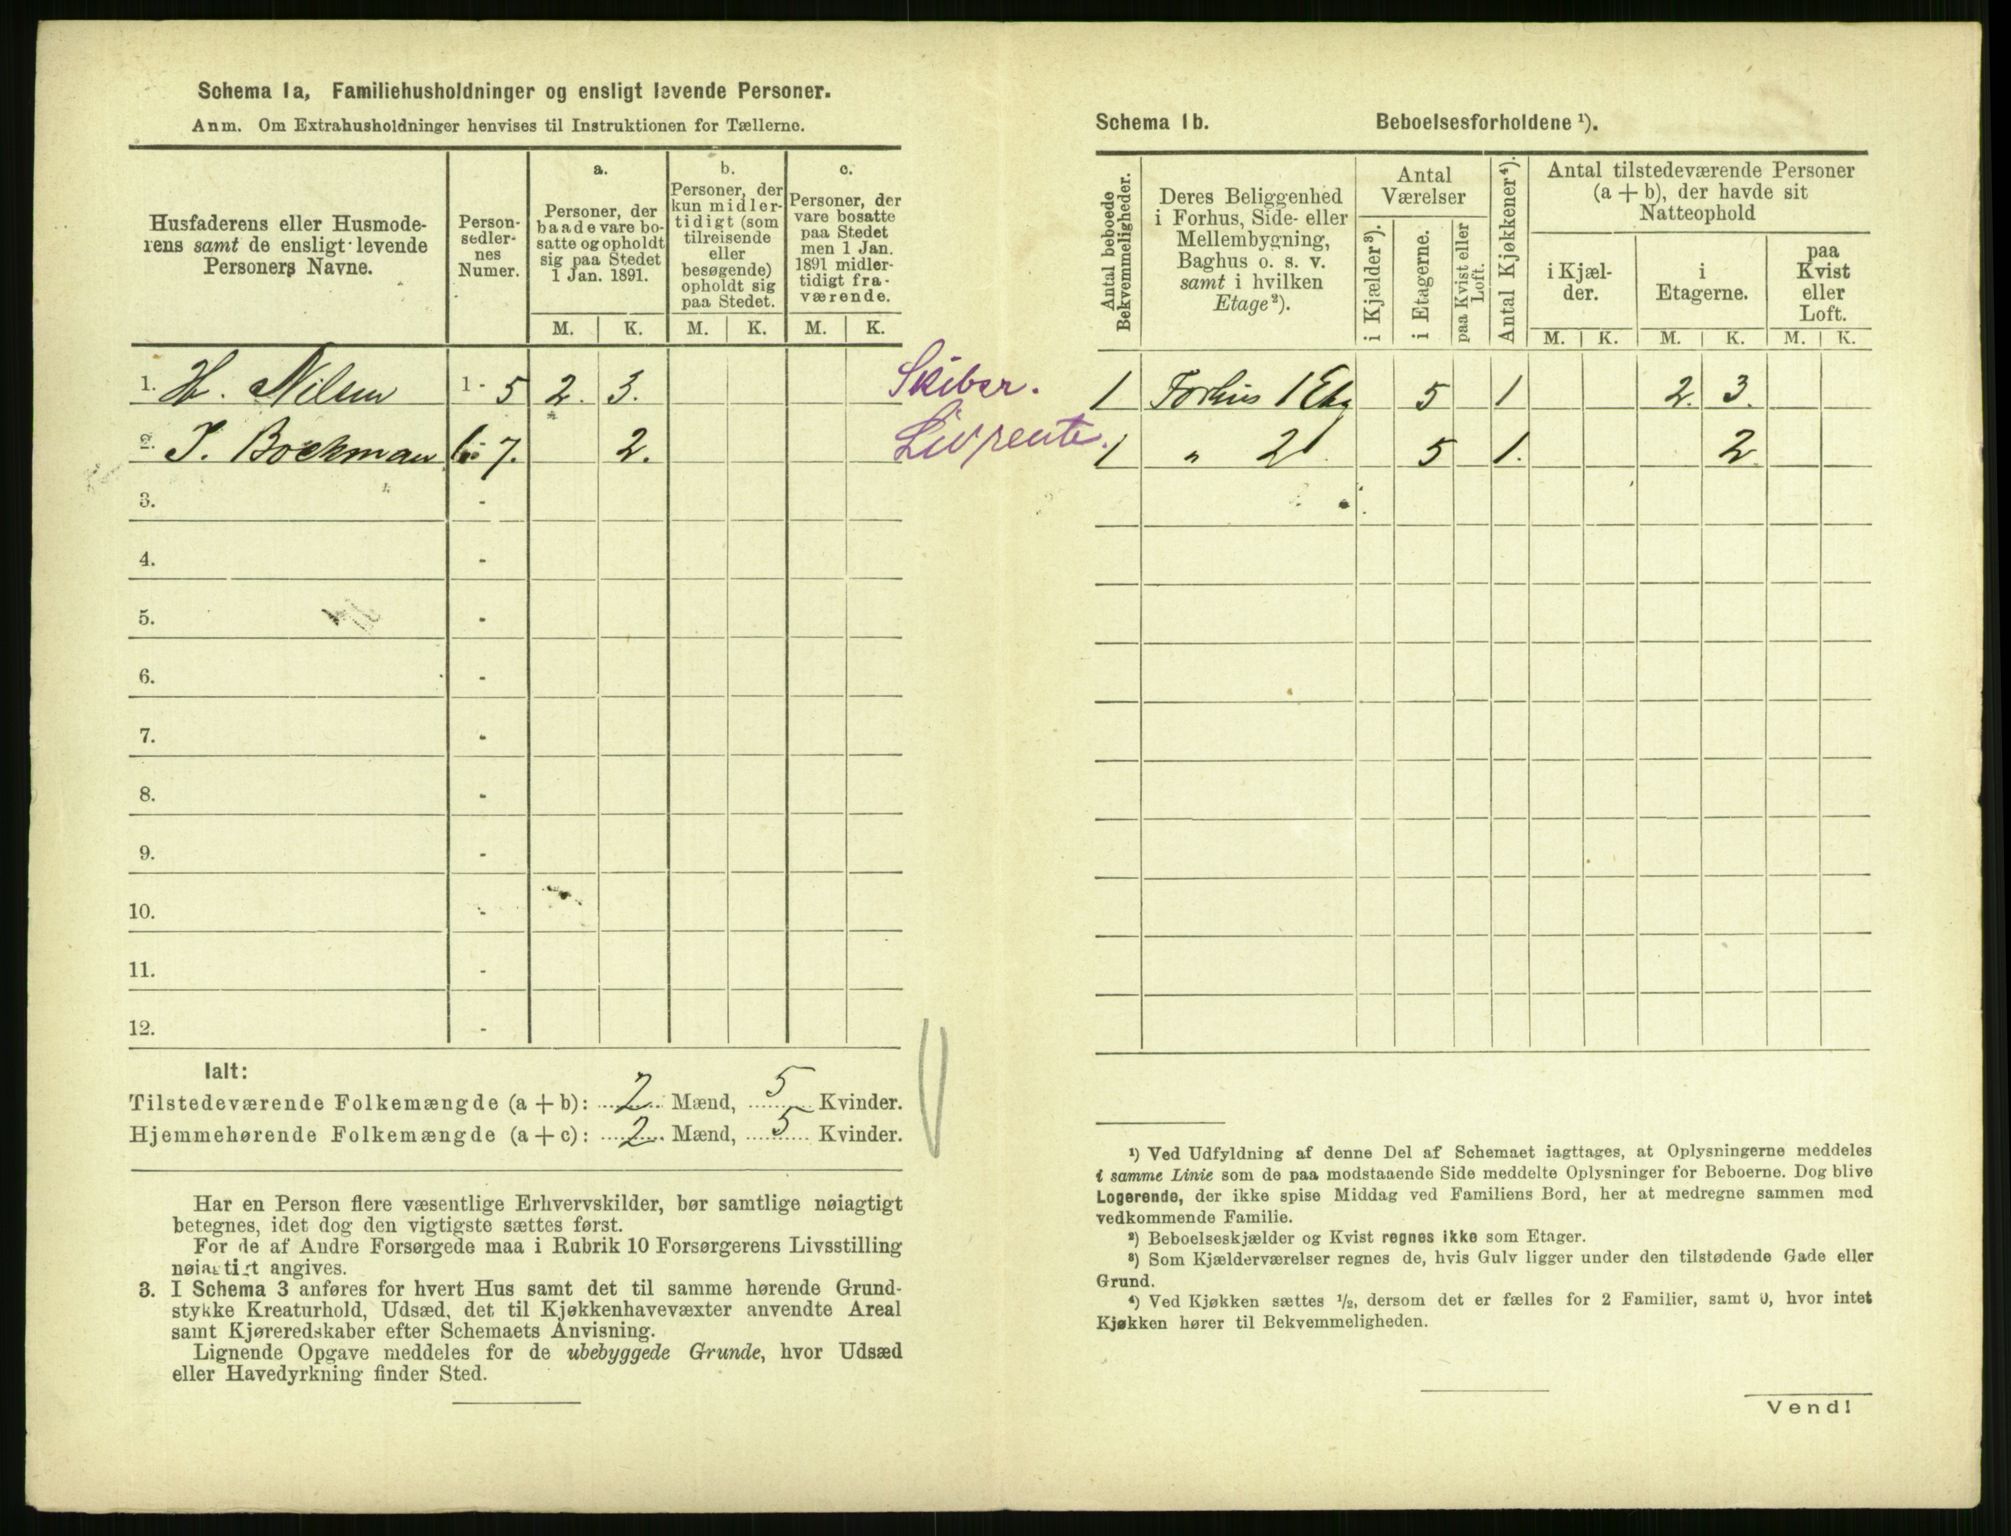 Schema 1a, Familiehusholdninger og ensligt levende Personer.
Anm. Om Extrahusholdninger henvises til Instruktionen for Tællerne.
Husfaderens eller Husmode-
rens samt de ensligt levende
Personers Navne.
Person-
sedler-
nes
Numer.
a.
Personer, der
baade vare bo-
satte og opholdt
sig paa Stedet
1 Jan. 1891.
b.
Personer, der
kun midler-
tidigt (som
tilreisende
eller
besøgende)
opholdt sig
paa Stedet.
c.
Personer, der
vare bosatte
paa Stedet
men 1 Jan.
1891 midler-
tidigt fra-
værende.
M. K. M. K. M. K.
1. H. Nilsen 1 - 5 2. 3. Skiber.
2. J. Bockman 6 - 7. 2. Livrente.
3. -
4. -
5. -
6. -
7. -
8. -
9. -
10. -
11. -
12. -
Ialt:
Tilstedeværende Folkemængde (a + b): 2 Mænd, 5 Kvinder.
Hjemmehørende Folkemængde (a + c): 2 Mænd, 5 Kvinder.
Har en Person flere væsentlige Erhvervskilder, bør samtlige nøiagtigt
betegnes, idet dog den vigtigste sættes først.
For de af Andre Forsørgede maa i Rubrik 10 Forsørgerens Livsstilling
nøiagtigt angives.
3. I Schema 3 anføres for hvert Hus samt det til samme hørende Grund-
stykke Kreaturhold, Udsæd, det til Kjøkkenhavevæxter anvendte Areal
samt Kjøreredskaber efter Schemaets Anvisning.
Lignende Opgave meddeles for de ubebyggede Grunde, hvor Udsæd
eller Havedyrkning finder Sted.
Schema 1b. Beboelsesforholdene ¹).
Antal beboede
Bekvemmeligheder.
Deres Beliggenhed
i Forhus, Side- eller
Mellembygning,
Baghus o. s. v.
samt i hvilken
Etage²).
Antal
Værelser
i Kjælder³).
i Etagerne.
paa Kvist eller
Loft.
Antal Kjøkkener⁴).
Antal tilstedeværende Personer
(a + b), der havde sit
Natteophold
i Kjæl-
der.
i
Etagerne.
paa
Kvist
eller
Loft.
M. K. M. K. M. K.
1 Forhus 1 Etg 5 1 2. 3.
1 " 2 5 1. 2
¹) Ved Udfyldning af denne Del af Schemaet iagttages, at Oplysningerne meddeles
i samme Linie som de paa modstaaende Side meddelte Oplysninger for Beboerne. Dog blive
Logerende, der ikke spise Middag ved Familiens Bord, her at medregne sammen med
vedkommende Familie.
²) Beboelseskjælder og Kvist regnes ikke som Etager.
³) Som Kjælderværelser regnes de, hvis Gulv ligger under den tilstødende Gade eller
Grund.
⁴) Ved Kjøkken sættes ½, dersom det er fælles for 2 Familier, samt 0, hvor intet
Kjøkken hører til Bekvemmeligheden.
Vend!